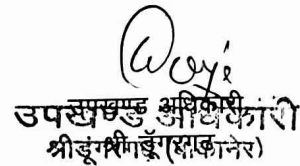 उपखण्ड अधिकारी
उपखण्ड अधिकारी
श्री डूँगरगढ़
श्रीडूंगरगढ़ (बीकानेर)